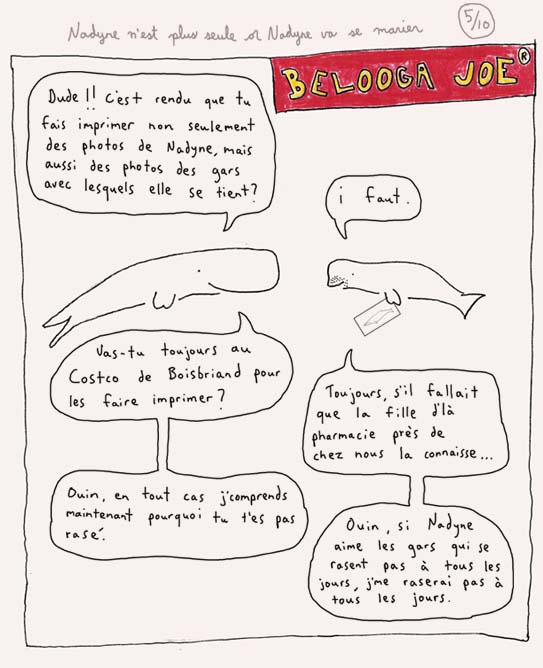 Nadyne n'est plus seule et Nadyne va se marier
5/10
BELOOGA JOE®
Dude!! C'est rendu que tu
fais imprimer non seulement
des photos de Nadyne, mais
aussi des photos des gars
avec lesquels elle se tient?
i faut.
Vas-tu toujours au
Costco de Boisbriand pour
les faire imprimer?
Toujours, s'il fallait
que la fille d'là
pharmacie près de
chez nous la connaisse...
Ouin, en tout cas j'comprends
maintenant pourquoi tu t'es pas
rasé.
Ouin, si Nadyne
aime les gars qui se
rasent pas à tous les
jours, j'me raserai pas à
tous les jours.